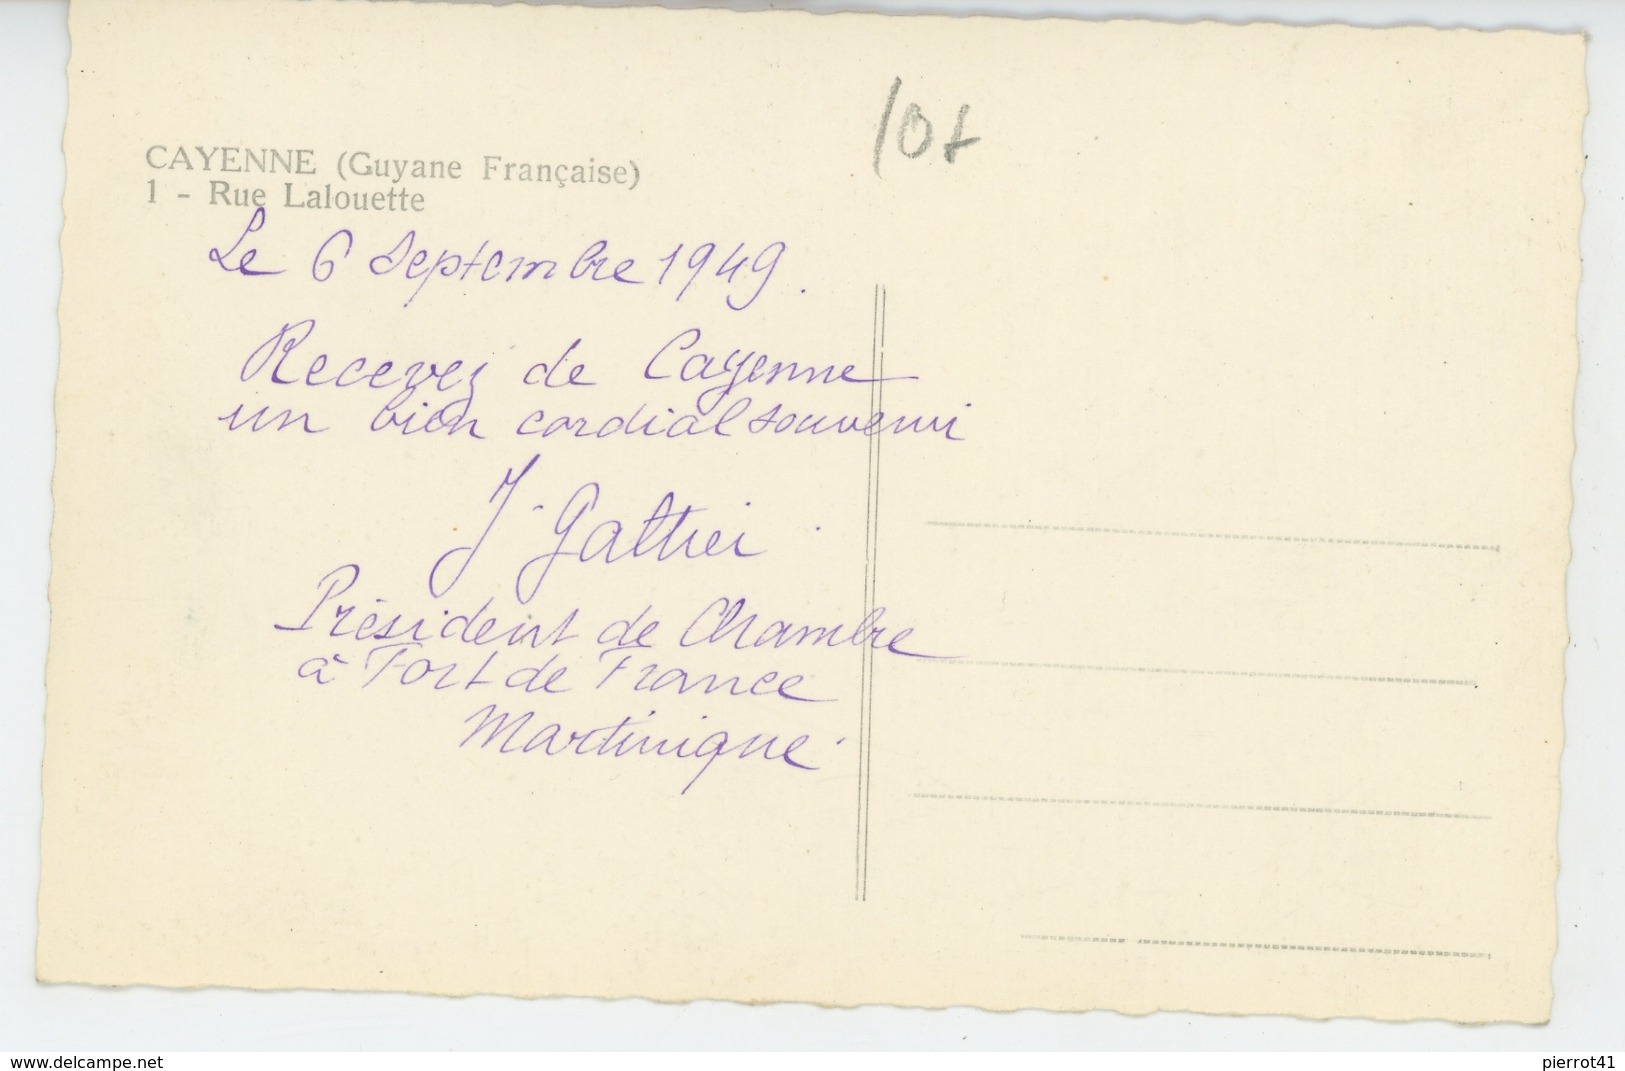 10f
CAYENNE (Guyane Française)
1 - Rue Lalouette
Le 6 Septembre 1949.
Recevez de Cayenne
un bien cordial souvenir
J. Galtier.
Président de Chambre
à Fort de France
Martinique.
www.delcampe.net
pierrot41